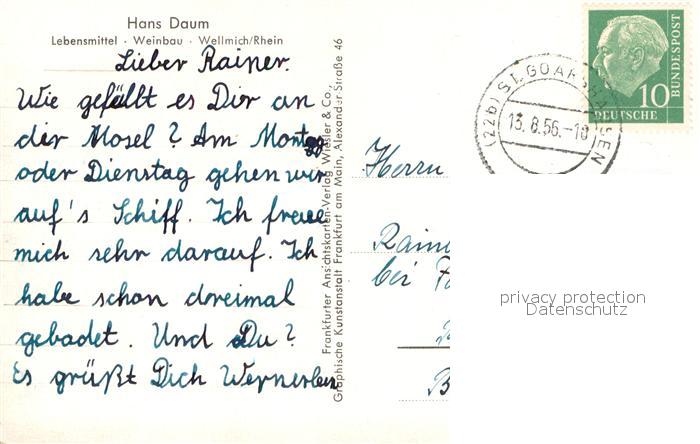 Hans Daum
Lebensmittel · Weinbau · Wellmich/Rhein
Lieber Rainer.
Wie gefällt es Dir an
der Mosel? Am Montag
oder Dienstag gehen wir
auf's Schiff. Ich freue
mich sehr darauf. Ich
habe schon dreimal
gebadet. Und Du?
Es grüßt Dich Wernerlein
Frankfurter Ansichtskarten-Verlag Wiesler & Co.,
Graphische Kunstanstalt Frankfurt am Main, Alexander-Straße 46
(22b) ST. GOARSHAUSEN
13.8.56.-10
10
DEUTSCHE
BUNDESPOST
Herrn
Raine
bei
B
privacy protection
Datenschutz